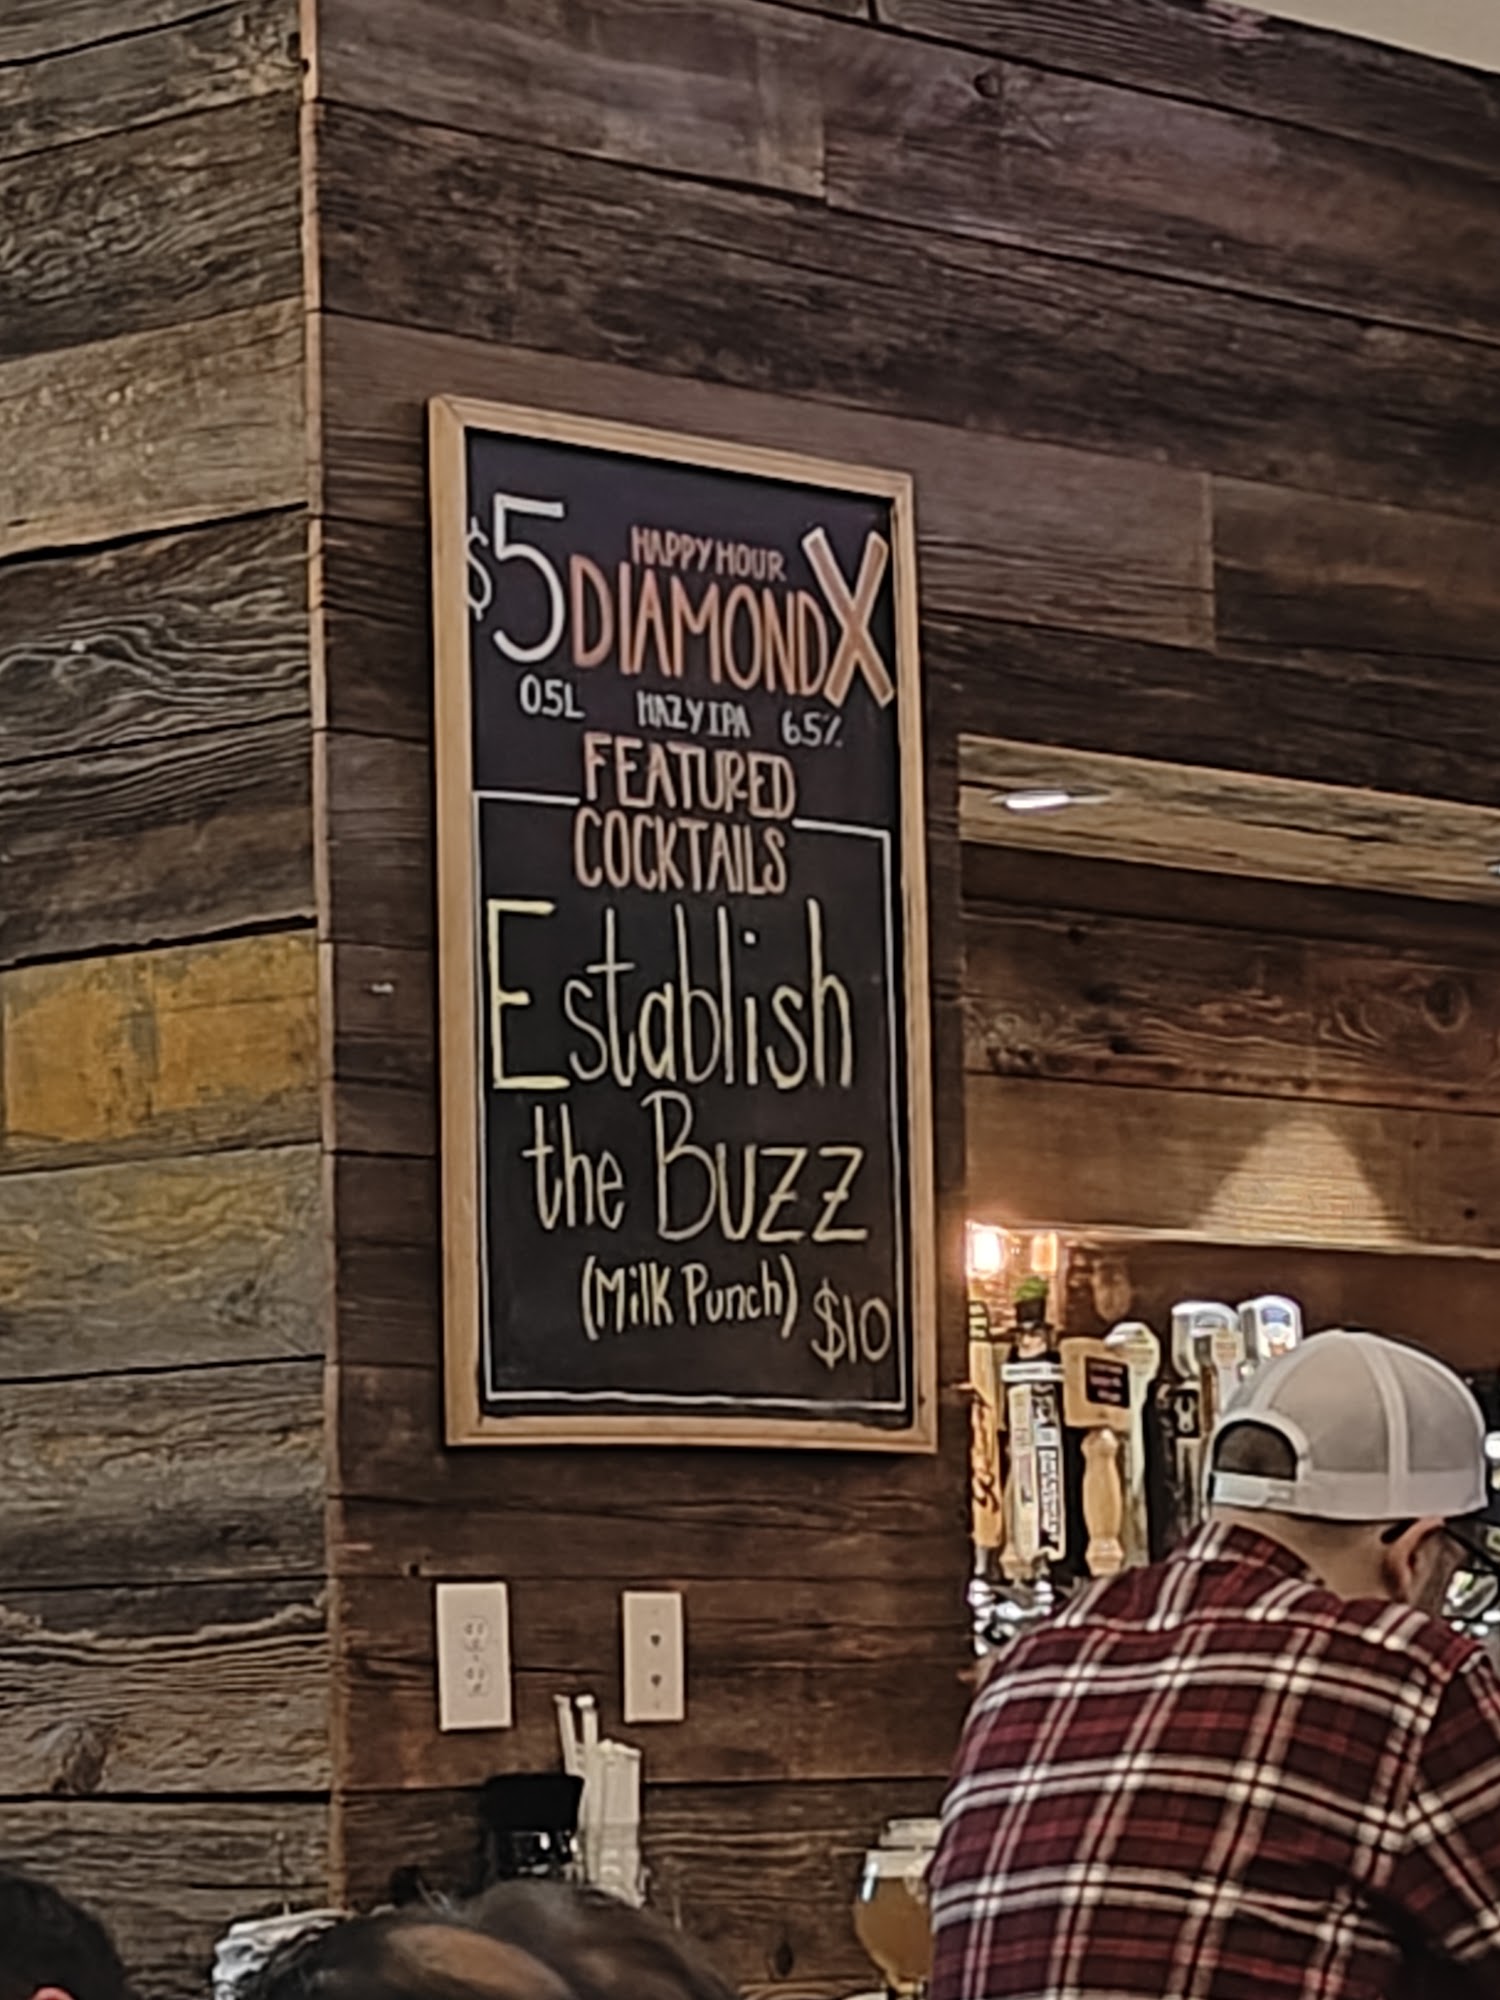 $5 HAPPY HOUR
DIAMOND X
0.5L HAZY IPA 6.5%
FEATURED
COCKTAILS
Establish
the Buzz
(Milk Punch) $10